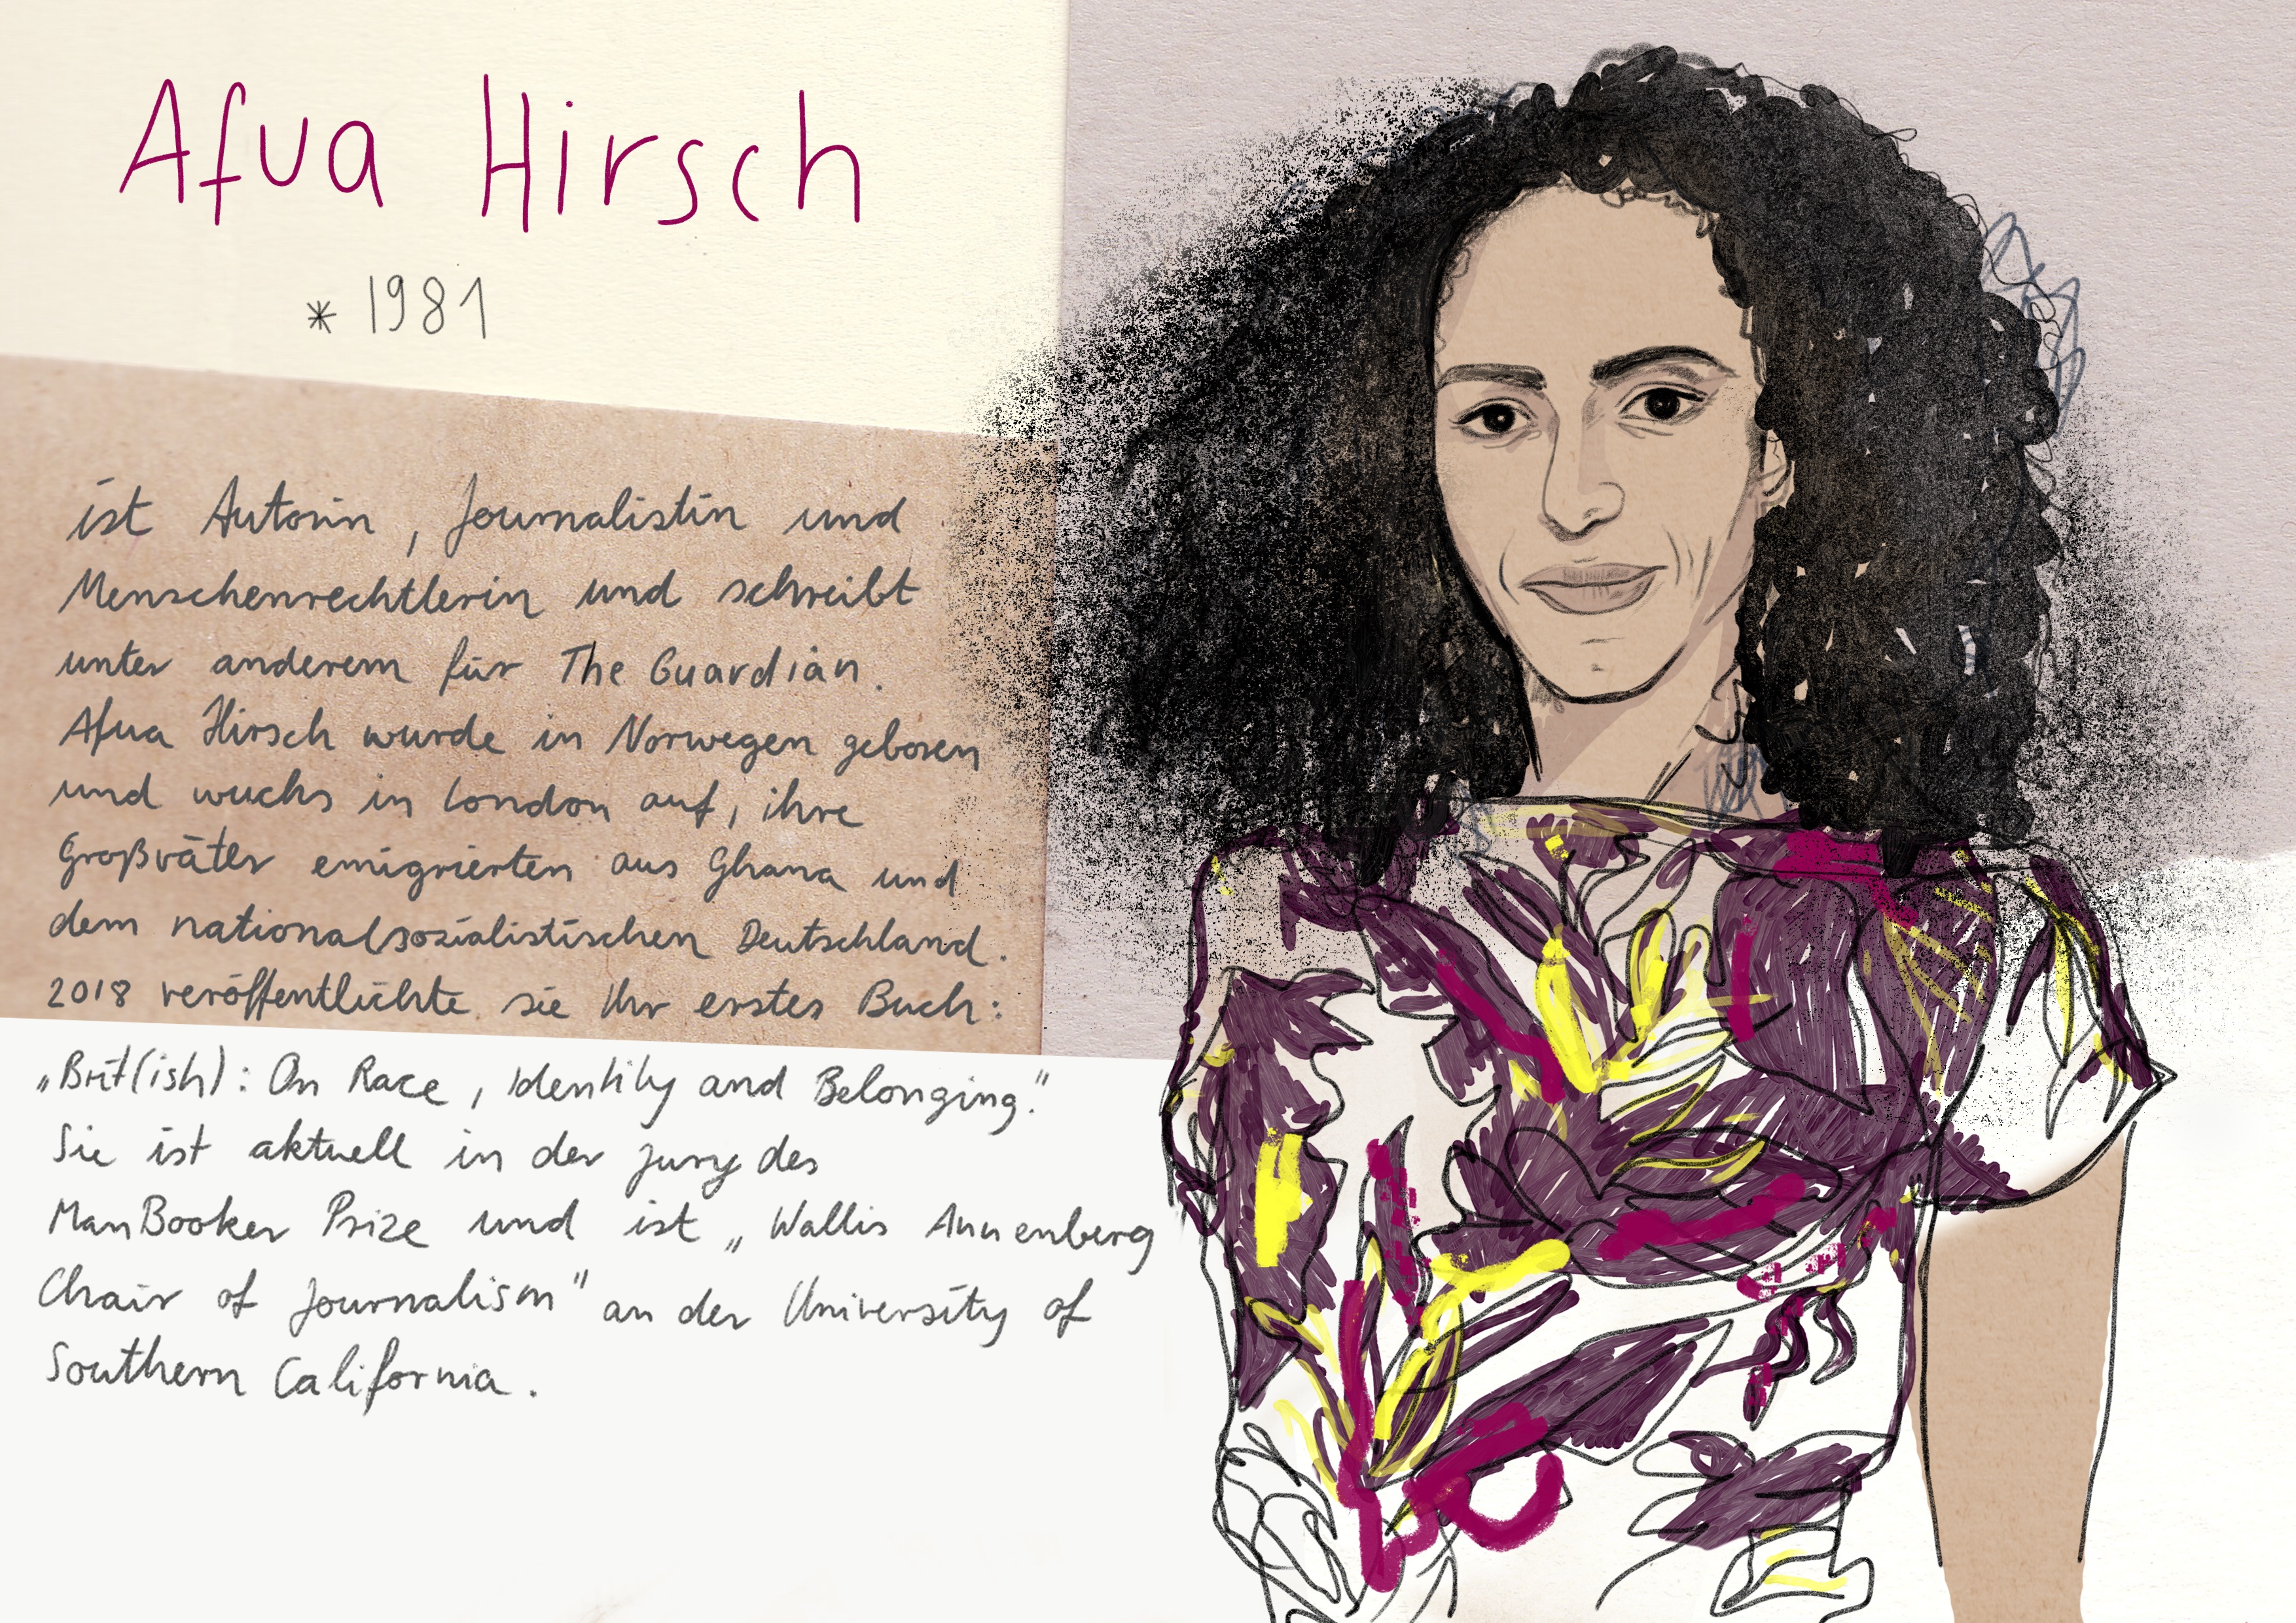 Afua Hirsch
* 1981
ist Autorin, Journalistin und
Menschenrechtlerin und schreibt
unter anderem für The Guardian.
Afua Hirsch wurde in Norwegen geboren
und wuchs in London auf, ihre
Großväter emigrierten aus Ghana und
dem nationalsozialistischen Deutschland.
2018 veröffentlichte sie Ihr erstes Buch:
„Brit(ish): On Race, Identity and Belonging."
Sie ist aktuell in der Jury des
ManBooker Prize und ist „Wallis Annenberg
Chair of Journalism" an der University of
Southern California.